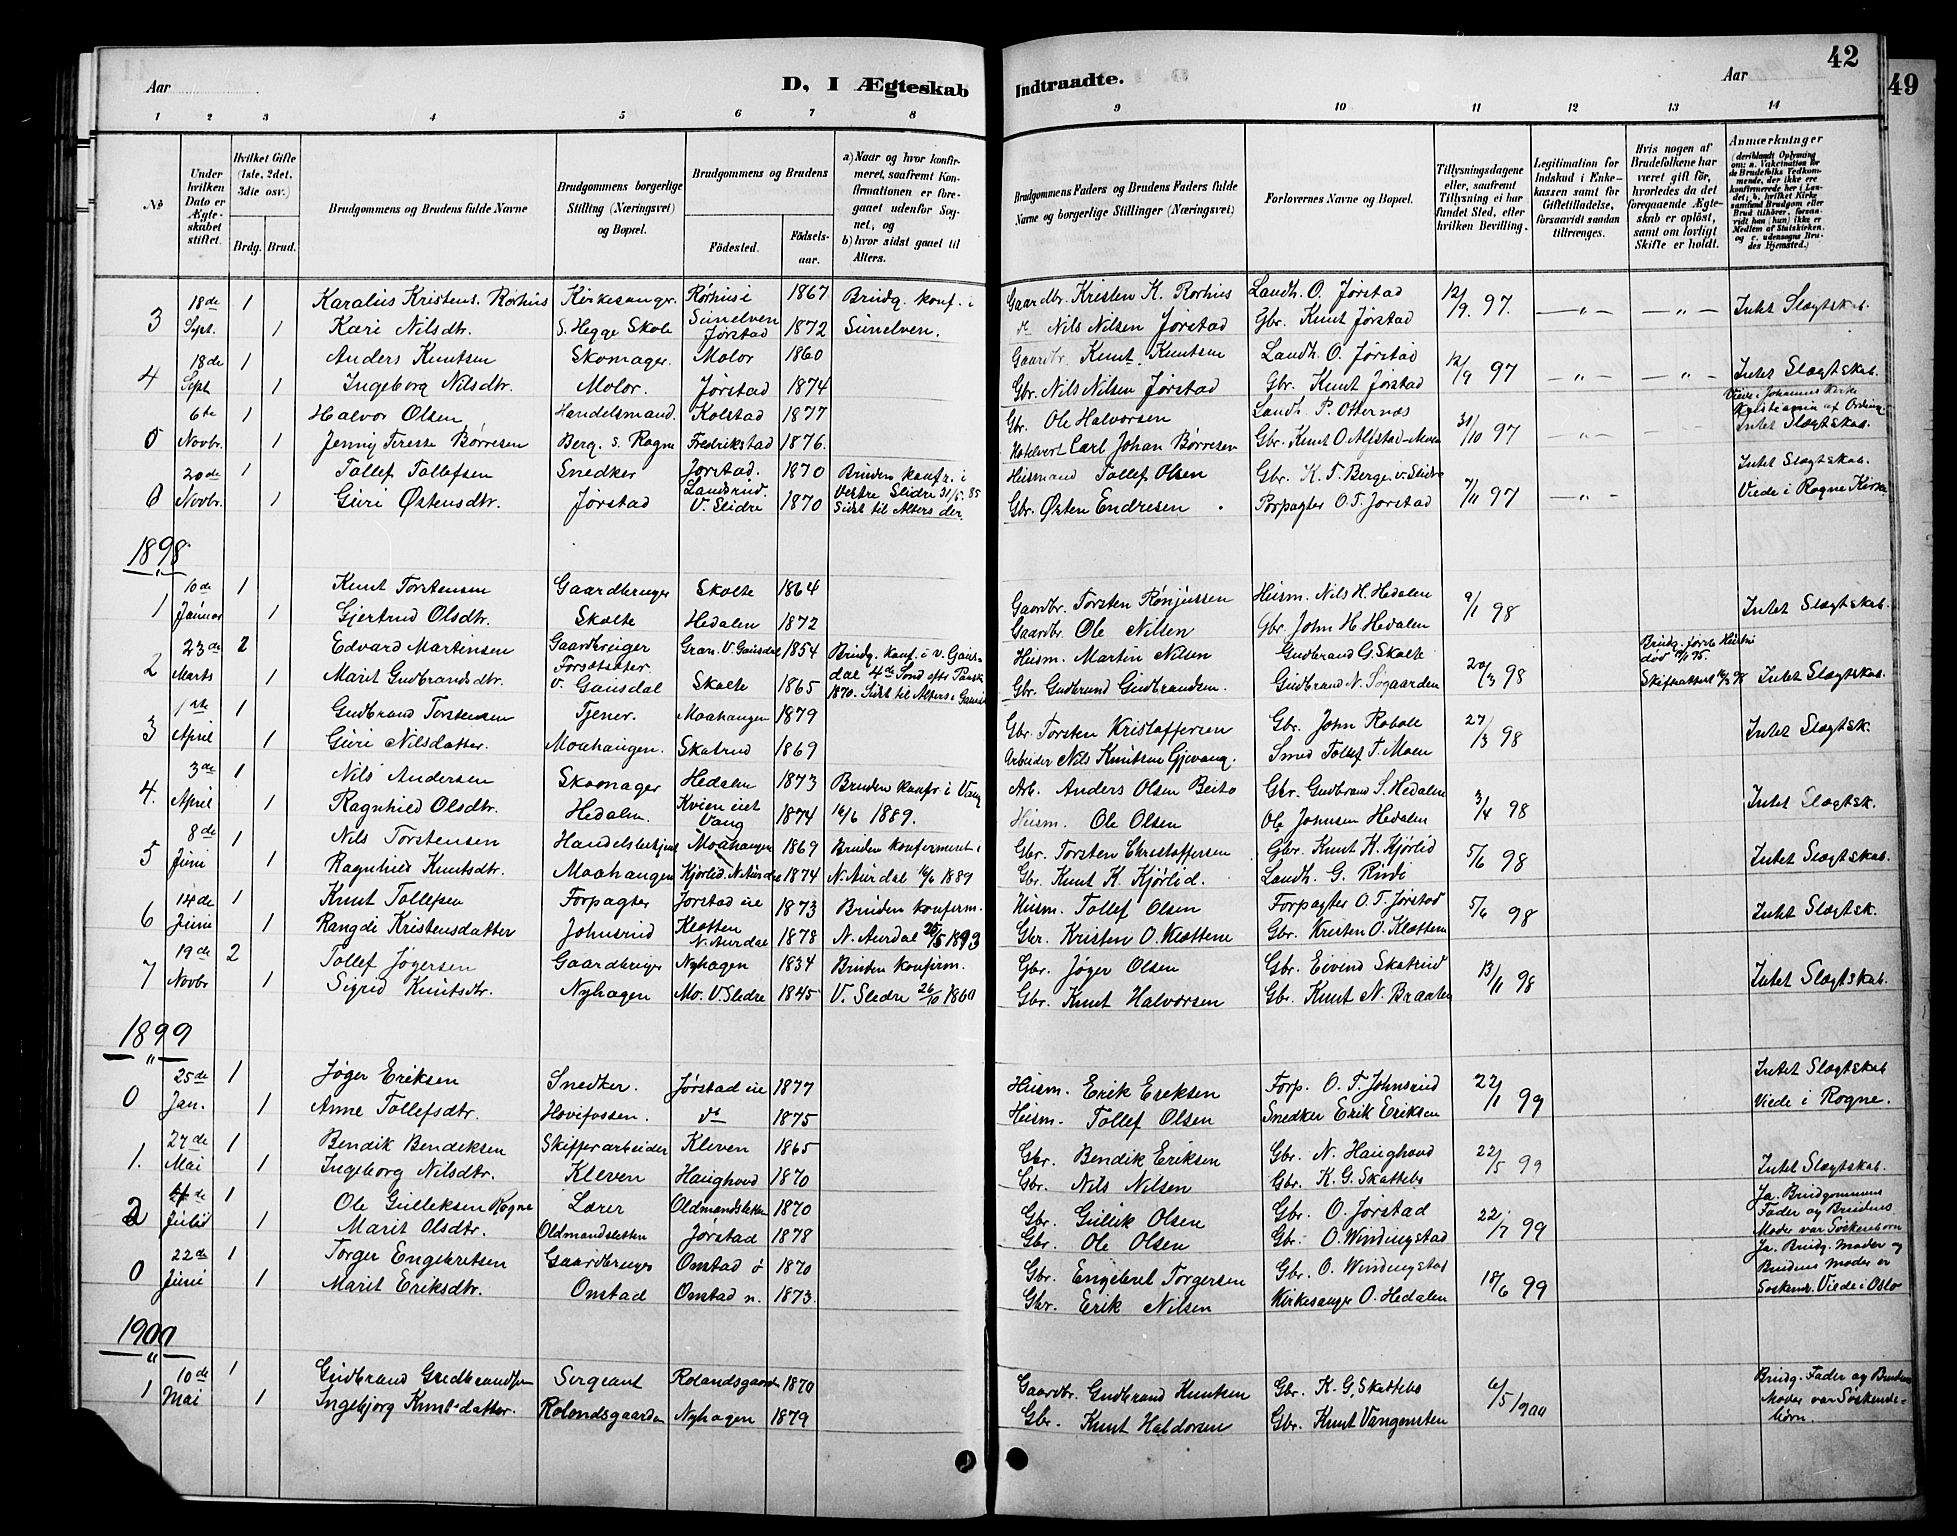 Aar
D, I Ægteskab Indtraadte.
Aar
42
49
1 2 3 4 5 6 7 8 9 10 11 12 13 14
No
Under hvilken Dato er Ægteskabet stiftet.
Hvilket Gifte (1ste, 2det, 3die osv.)
Brdg. Brud.
Brudgommens og Brudens fulde Navne
Brudgommens borgerlige Stilling (Næringsvei) og Bopæl.
Brudgommens og Brudens
Födested.
Födselsaar.
a) Naar og hvor konfirmeret, saafremt Konfirmationen er foregaaet udenför Sognet, og
b) hvor sidst gaaet til Alters.
Brudgommens Faders og Brudens Faders fulde Navne og borgerlige Stillinger (Næringsvei)
Forlovernes Navne og Bopæl.
Tillysningsdagene eller, saafremt Tillysning ei har fundet Sted, efter hvilken Bevilling.
Legitimation for Indskud i Enkekassen samt for Giftetilladelse, forsaavidt saadan tiltrænges.
Hvis nogen af Brudefolkene har været gift för, hvorledes da det foregaaende Ægteskab er oplöst, samt om lovligt Skifte er holdt.
Anmærkninger
3 18de Sept. 1 Karalius Kristens. Rørhus Kirkesanger Rørhus i Sunelven 1867 Brudg. konf. i Gaardbr. Kristen K. Rørhus Landh. O. Jørstad 12/9. 97. — " — — " — Intet Slægtskab.
1 Kari Nilsdtr. S. Hegge Skole Jørstad 1872 Sunelven. Nils Nilsen Jørstad Gbr. Knut Jørstad
4 18de Sept 1 Anders Knutsen Skomager Molor 1860 Gaardbr. Knut Knutsen Landh. O. Jørstad 12/9 97 — " — — " — Intet Slægtskab.
1 Ingeborg Nilsdtr. Molor. Jørstad 1874 Gbr. Nils Nilsen Jørstad Gbr. Knut Jørstad
5 6te Novbr. 1 Halvor Olsen Handelsmand. Kolstad 1877 Gbr. Ole Halvorsen Landh. P. Otternæs 31/10 97 Viede i Johannes Kirke Kristiania
1 Jenny Terese Børresen Berg. s. Rogne Fredrikstad 1876. Hotelvert Carl Johan Børresen Gbr. Knut O. Alfstad Intet Slægtskab.
6 20de Novbr. 1 Tollef Tollefsen Snedker Jørstad. 1870 Bruden konfr. i Husmand Tollef Olsen Gbr. K. T. Berge v. Slidre 7/11 97 — " — Intet Slægtskab.
1 Guri Østensdtr. Jørstad Landsrud. V. Slidre 1870 Vestre Slidre 31/5. 85 Sidst til Alters der. Gbr. Østen Endresen Forpagter O. T. Jørstad Viede i Rogne Kirke
1898
1 10de Januar 1 Knut Torstensen Gaardbruger Skolte 1864 Gaardbr. Torsten Rønjussen Husm. Nils H. Hedalen 9/1 98 Intet Slægtskab.
1 Gjertrud Olsdtr. Skolte Hedalen 1872 Gaardbr. Ole Nilsen Gbr. John H. Hedalen
2 23de Marts 2 Edvard Martinsen Gaardbruger Gran. V. Gausdal 1854 Brudg. konf. i v. Gausdal 4de Sønd efter Paask 1870. Sidst til Alters i Gausd. Husm. Martin Nilsen Gudbrand G. Skolte 20/3 98 Brudg. første Hustru død 95. Intet Slægtskab.
1 Marit Gudbrandsdtr. Forsætseter v. Gausdal Skolte 1865 Gbr. Gudbrand Gudbrandsen. Gudbrand N. Søgaarden
3 1ste April 1 Gudbrand Torstensen Tjener. Moahaugen 1879 Gbr. Torsten Kristoffersen Gbr. John Robole 27/3 98 Intet Slægtsk.
1 Guri Nilsdatter. Moahaugen. Skatrud 1869 Arbeider Nils Knutsen Gjevang. Smed Tollef T. Moen
4. 3de April 1 Nils Andersen Skomager Hedaln 1873 Bruden konfr. i Vang Arb. Anders Olsen Beito Gbr. Gudbrand S. Hedalen 3/4 98 Intet Slægtsk.
1 Ragnhild Olsdtr. Hedalen. Kvien eiet Vang 1874 16/6 1889. Husm. Ole Olsen Ole Johnsen Hedalen
5 8de Juni 1 Nils Torstensen Handelsbetjent Moahaugen 1869 Bruden konfirmeret i Gbr. Torsten Christoffersen Gbr. Knut K. Kjørlid 5/6 98 Intet Slægtskab.
1 Ragnhild Knutsdtr. Moahaugen Kjørlid. N. Aurdal 1874 N. Aurdal 16/6 1889 Gbr. Knut K. Kjørlid. Landh. G. Rindi
6 14de Juni 1 Knut Tollefsen Forpagter Jørstad eie 1873 Bruden konfirm. Husm. Tollef Olsen Forpagter O. T. Jørstad 5/6 98 Intet Slægtsk.
1 Rangdi Kristensdatter Johnsrud Kløtten N. Aurdal 1878 N. Aurdal 25/5 1893 Gbr. Kristen O. Kløttene Gbr. Kristen O. Kløttene
7 19de Novbr 2 Tollef Jøgersen Gaardbruger Nyhagen 1834 Bruden konfirm. Gbr. Jøger Olsen Gbr. Eivind Skatrud 13/11 98 Intet Slægtskab.
1 Sigrid Knutsdtr. Nyhagen Mo. V. Sledre 1845 V. Sledre 26/10 1860 Gbr. Knut Halvorsen Gbr. Knut N. Braaten
1899
0 25de Jan. 1 Jøger Eriksen Snedker. Jørstad eie 1877 Husm. Erik Ereksen Forp. O. T. Johnsrud 22/1 99 Intet Slægtskab
1 Anne Tollefsdtr. Hovefossen. do 1875 Husm. Tollef Olsen Snedker Erik Eriksen Viede i Rogne.
1. 27de Mai 1 Bendik Bendeksen Skiferarbeider Kleven 1865 Gbr. Bendik Eriksen Gbr. N. Haughovd 22/5 99 Intet Slægtskab.
1 Ingeborg Nilsdtr. Kleven Haughovd 1870 Gbr. Nils Nilsen Gbr. K. G. Skattebo
2 4de Juli 1 Ole Gulleksen Rogne Lærer Oldmandsletten 1870 Gbr. Gullik Olsen Gbr. O. Jørstad 22/7 99 Ja. Brudgommens Fader og Brudens Moder var Søskenborn
1 Marit Olsdtr. Oldmandsletten Jørstad 1878 Gbr. Ole Olsen Gbr. O. Windingstad
0 22de Juni 1 Torger Engebretsen Gaardbruger Onstad ø 1870 Gbr. Engebret Torgersen Gbr. O. Windingstad 18/6 99 Ja. Brudg. moder og Brudens moder er Søskend. Viede i Oslo
1 Marit Eriksdtr. Onstad Onstad n. 1873. Gbr. Erik Nilsen Kirkesanger O. Hedalen
1900
1 10de Mai 1 Gudbrand Gudbrandsen Sergeant Rolandsgaarden 1870 Gaardbr. Gudbrand Knutsen Gbr. K. G. Skattebo 6/5 1900 Brudg. Fader og Brudens Moder var Søskendebörn.
1 Ingebjørg Knutsdatter. Rolandsgaarden Nyhagen 1879 Gbr. Knut Haldorsen Gbr. Knut Vangensten